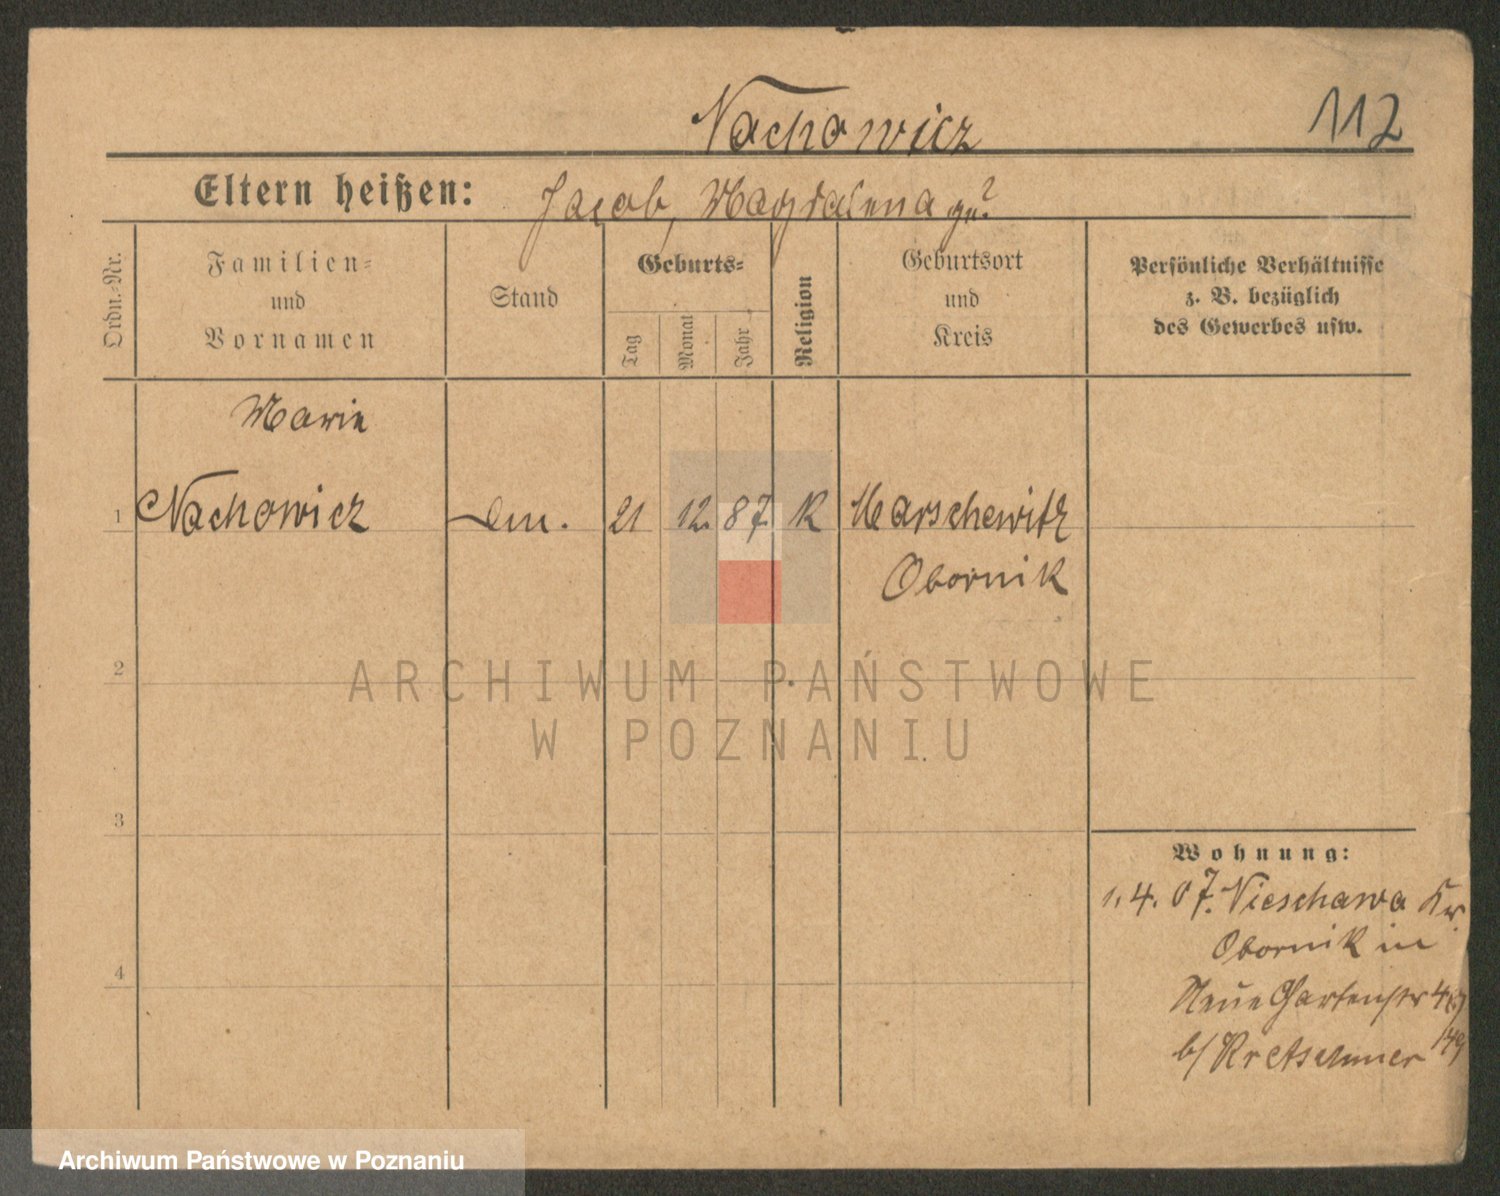 Nachowicz
112
Eltern heißen: Jacob, Magdalena
Ordn.-Nr.
Familien-
und
Vornamen
Stand
Geburts-
Tag
Monat
Jahr
Religion
Geburtsort
und
Kreis
Persönliche Verhältnisse
z. B. bezüglich
des Gewerbes usw.
Marie
1 Nachowicz 21 12. 87. K Marschewitz
Obornik
2
ARCHIWUM PAŃSTWOWE
W POZNANIU
3
Wohnung:
1. 4. 07. Nieschawa Kr.
Obornik in
4
Neue Gartenstr
b/ Kretschmer
Archiwum Państwowe w Poznaniu